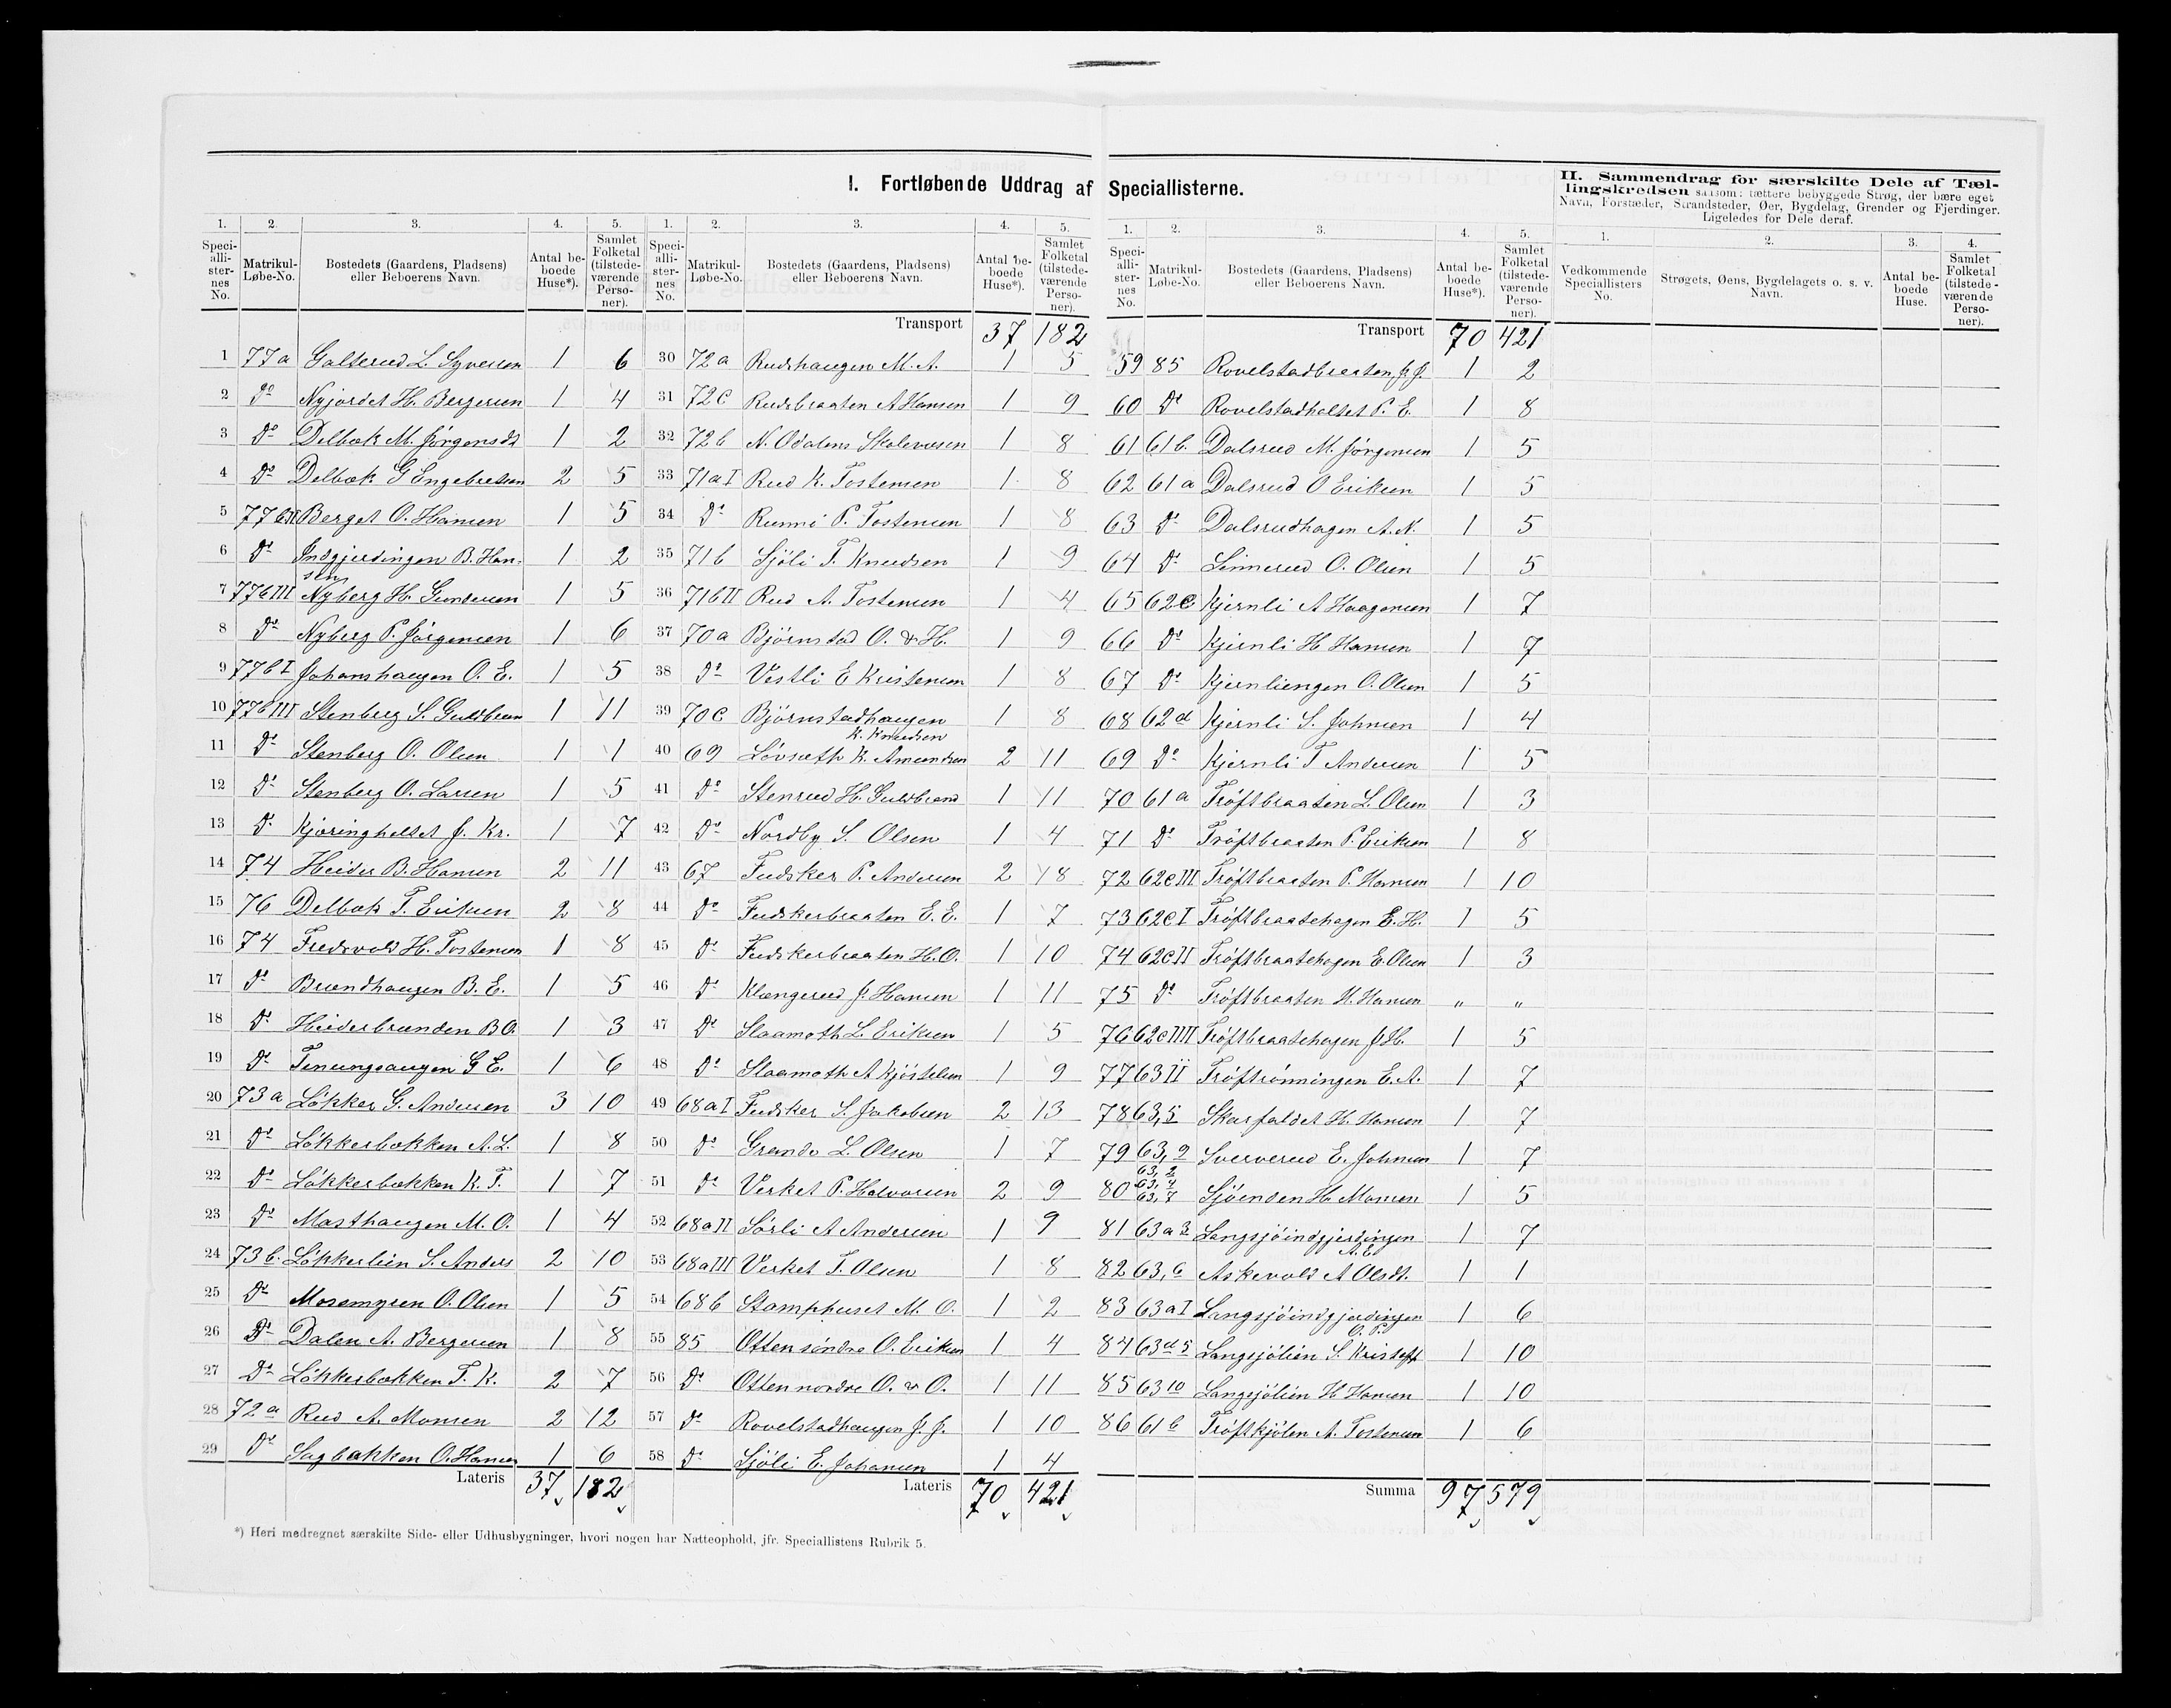 I. Fortløbende Uddrag af Speciallisterne.
1. 2. 3. 4. 5.
Speciallisternes No. Matrikul-Løbe-No. Bostedets (Gaardens, Pladsens) eller Beboerens Navn. Antal beboede Huse*). Samlet Folketal (tilstedeværende Personer).
1 77a Galterud L. Syversen 1 6
2 Do Nyjordet H. Bergersen 1 4
3 Do Delbæk M. Jørgensdt 1 2
4 Do Delbæk G Engebretsen 2 5
5 77bII Berget O. Hansen 1 5
6 Do Indgjerdingen B. Hansen 1 2
7 77bIII Nyberg H. Gundersen 1 5
8 Do Nyberg P. Jörgensen 1 6
9 77bI Johanshaugen O. E. 1 5
10 77bIII Stenberg S. Guldbran 1 11
11 Do Stenberg O. Olsen 1 1
12 Do Stenberg O. Larsen 1 5
13 Do Kjæringholtet J. Kr. 1 7
14 74 Heider B. Hansen 2 11
15 76 Delbæk T. Eriksen 2 8
16 74 Fredsvold H. Tostensen 1 8
17 Do Brændhaugen B. E. 1 5
18 Do Heiderbrænden B O. 1 3
19 Do G E. 1 6
20 73a Løkker G. Andersen 3 10
21 Do Løkkerbækken A. L. 1 8
22 Do Løkkerbækken K. T. 1 7
23 Do Masthaugen M. O. 1 4
24 73b. Løkkerlien S. Anders 2 10
25 Do Mosemyren O. Olsen 1 5
26 Do Dalen A. Bergersen 1 8
27 Do Løkkerbækken T. K. 2 7
28 72a Rud A. Monsen 2 12
29 Do Sagbakken O. Hansen 1 6
Lateris 37 182
*) Heri medregnet særskilte Side- eller Udhusbygninger, hvori nogen har Natteophold, jfr. Speciallistens Rubrik 5.
1. 2. 3. 4. 5.
Speciallisternes No. Matrikul-Løbe-No. Bostedets (Gaardens, Pladsens) eller Beboerens Navn. Antal beboede Huse*). Samlet Folketal (tilstedeværende Personer).
Transport 37 182
30 72a Rudshaugen M. A. 1 5
31 72c Rudsbraaten A Hansen 1 9
32 72b N. Odalens Skolevæsen 1 8
33 71aI Rud K. Tostensen 1 8
34 Do Runni P. Tostensen 1 8
35 71b Sjöli T. Knudsen 1 9
36 71bII Rud A. Tostensen 1 4
37 70a Björnstad O. & H. 1 9
38 Do Vestli E Kristensen 1 8
39 70c Björnstadhaugen K. Knudsen 1 8
40 69 Lövsæth K. Amundsen 2 11
41 Do Stenrud H. Guldbrand 1 11
42 Do Nordby S. Olsen 1 4
43 67 Fudsker P. Andersen 2 18
44 Do Fudskerbraaten E. E. 1 7
45 Do Fudskerbraaten H. O. 1 10
46 Do Klængerud J. Hansen 1 11
47 Do Slaamoth L. Eriksen 1 5
48 Do Slaamoth A Kjöstelsen 1 9
49 68aI Fudsker S. Jakobsen 2 13
50 Do L. Olsen 1 7
51 Do Verket P. Halvorsen 2 9
52 68aII Sörli A Andersen 1 9
53 68aIII Verket T. Olsen 1 8
54 68b Stamphuset M. O. 1 2
55 85 Otten söndre O. Eriksen 1 4
56 Do Otten nordre O. & O. 1 11
57 Do Rovelstadhaugen J. J. 1 10
58 Do Sjöli E. Johansen 1 4
Lateris 70 421
1. 2. 3. 4. 5.
Speciallisternes No. Matrikul-Løbe-No. Bostedets (Gaardens, Pladsens) eller Beboerens Navn. Antal beboede Huse*). Samlet Folketal (tilstedeværende Personer).
Transport 70 421
59 85 Rovelstadbraaten J. J. 1 2
60 Do Rovelstadholtet P. E. 1 8
61 61b. Dalsrud M. Jörgensen 1 5
62 61a Dalsrud O Eriksen 1 5
63 Do Dalsrudhagen A. N. 1 5
64 Do Linnerud O. Olsen 1 5
65 62c Kjernli A Haagensen 1 7
66 Do Kjernli H Hansen 1 7
67 Do Kjernliengen O. Olsen 1 5
68 62d Kjernli S. Johnsen 1 4
69 Do Kjernli T Andersen 1 5
70 61a Tröftbraaten L. Olsen 1 3
71 Do Tröftbraaten P. Eriksen 1 8
72 62cIII Tröftbraaten P. Hansen 1 10
73 62cI Tröftbraatehagen E. H. 1 5
74 62cII Tröftbraatehagen E. Olsen 1 3
75 Do Tröftbraaten H. Hansen " "
76 62cIIII Tröftbraatehagen J H. 1 5
77 63II Tröftrönningen E. A. 1 7
78 63,5 Skarpaldet H. Hansen 1 7
79 63,9 Sververud E. Johnsen 1 7
80 63,2 63,4 63,7 Sjöenden H. Monsen 1 5
81 63a3 Langsjöindgjerdingen A. E. 1 7
82 63,6 Askevold A Olsdt. 1 1
83 63aI Langsjöindgjerdingen O. P. 1 6
84 63d5 Langsjölien S. Kristoff 1 10
85 63 10 Langsjölien H Hansen 1 10
86 61b Tröftkjölen A. Tostensen 1 6
Summa 97 579
II. Sammendrag for særskilte Dele af Tællingskredsen saasom: tættere bebyggede Strøg, der bære eget
Navn, Forstæder, Strandsteder, Øer, Bygdelag, Grender og Fjerdinger.
Ligeledes for Dele deraf.
1. 2. 3. 4.
Vedkommende Speciallisters No. Strøgets, Øens, Bygdelagets o. s. v. Navn. Antal beboede Huse. Samlet Folketal (tilstedeværende Personer).